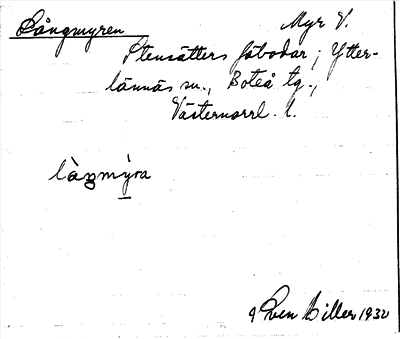 Långmyren Myr V.
Stensätters fäbodar; Ytter-
lännäs sn., Boteå tg.,
Västernorrl. l.
làŋmỳ̠ra
Sven Biller 1932